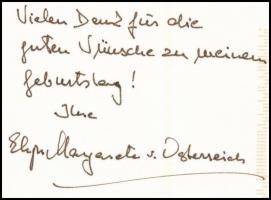 Vielen Dank für die
guten Wünsche zu meinem
Geburtstag!
Ihre
Margarete v. Österreich